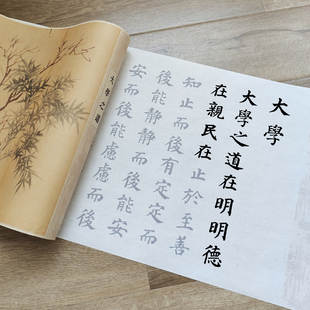 大學
大學之道在明明德
在親民在止於至善
知止而後有定定而
後能靜靜而後能安
安而後能慮慮而後
大學之道